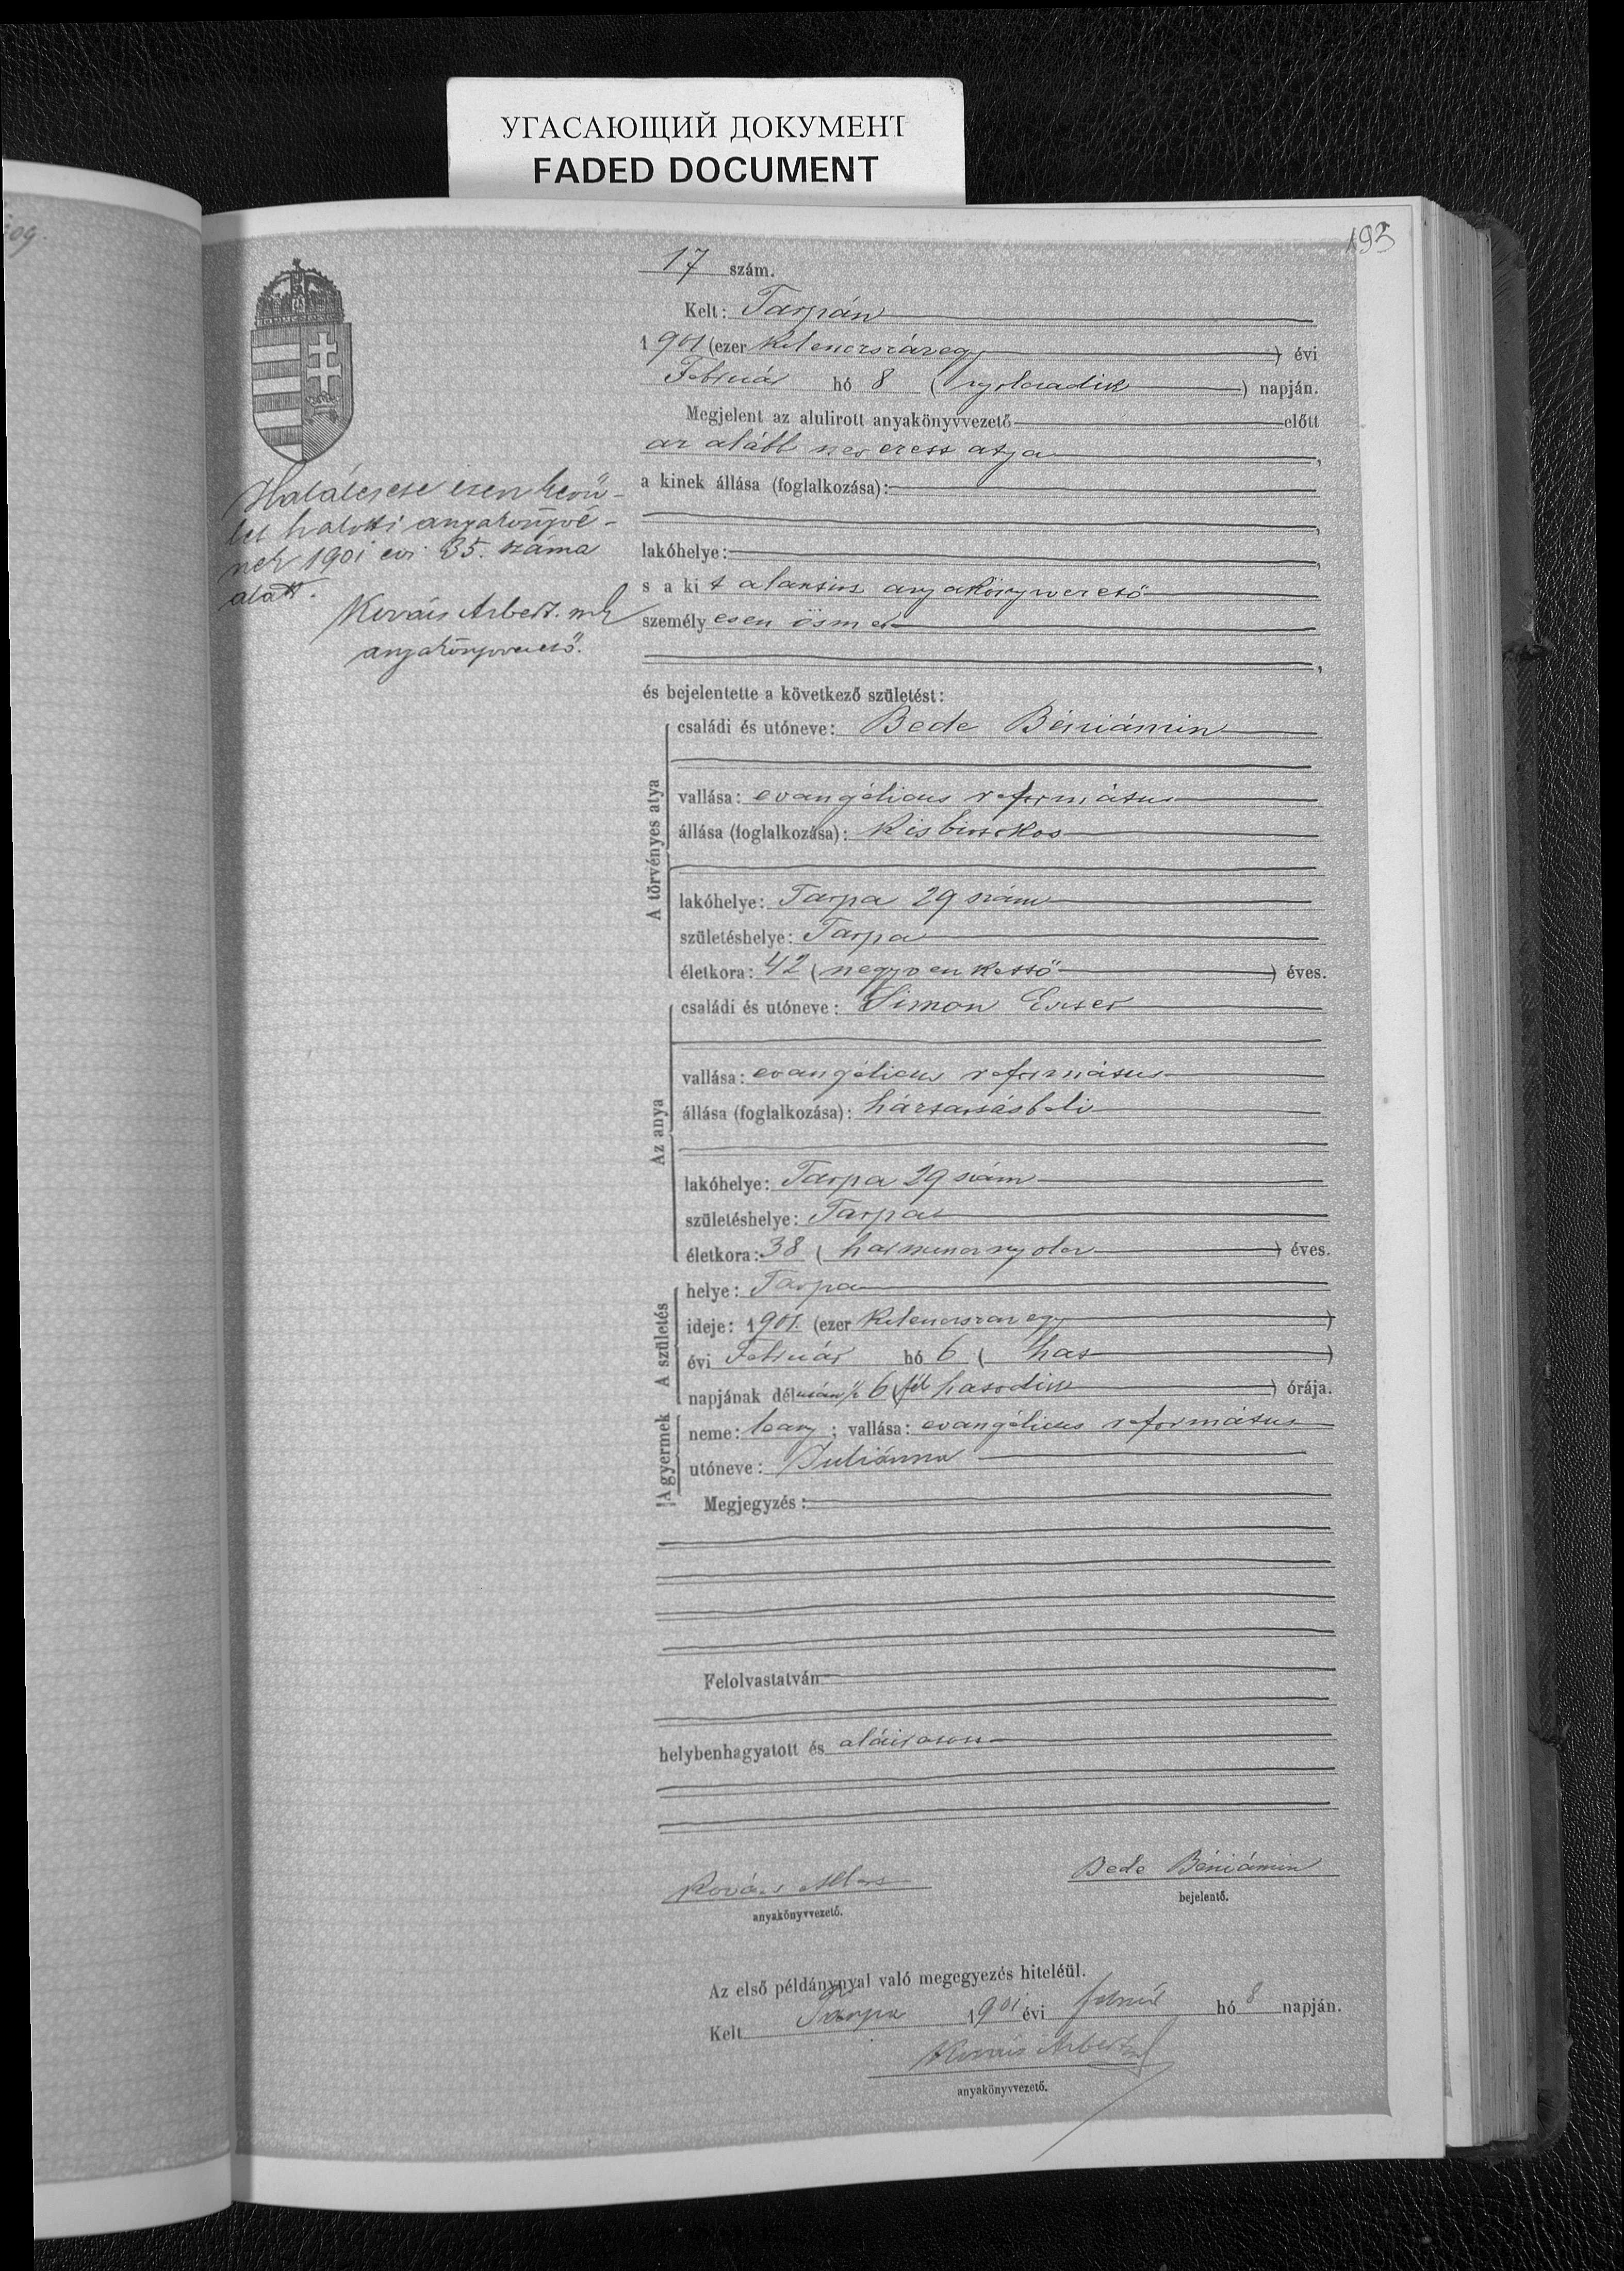 УГАСАЮЩИЙ ДОКУМЕНТ
FADED DOCUMENT
193
17 szám.
Kelt: Tarpán
1901 (ezer kilenczszázegy) évi
Február hó 8 (nyolczadik) napján.
Megjelent az alulirott anyakönyvvezető előtt
az alább nevezett atya,
a kinek állása (foglalkozása):
lakóhelye:
s a kit alantirt anyakönyvvezető
személyesen ösmer
és bejelentette a következő születést:
A törvényes atya
családi és utóneve: Bede Béniámin
vallása: evangélicus református
állása (foglalkozása): kisbirtokos
lakóhelye: Tarpa 29 szám
születéshelye: Tarpa
életkora: 42 (negyvenkettő) éves.
Az anya
családi és utóneve: Simon Eszter
vallása: evangélicus református
állása (foglalkozása): háztartásbeli
lakóhelye: Tarpa 29 szám
születéshelye: Tarpa
életkora: 38 (harmincznyolcz) éves.
A születés
helye: Tarpa
ideje: 1901. (ezer kilenczszázegy)
évi Február hó 6 (hat)
napjának délután ½ 6 (fél hatodik) órája.
A gyermek
neme: leány; vallása: evangélicus református
utóneve: Juliánna
Megjegyzés:
Felolvastatván
helybenhagyatott és aláiratott
Kovács Albert
anyakönyvvezető.
Bede Béniámin
bejelentő.
Az első példánynyal való megegyezés hiteléül.
Kelt Tarpa 1901 évi február hó 8 napján.
Kovács Albert
anyakönyvvezető.
Halálesete ezen kerü-
let halotti anyakönyvé-
nek 1901 évi 35. száma
alatt.
Kovács Albert. mk
anyakönyvvezető.